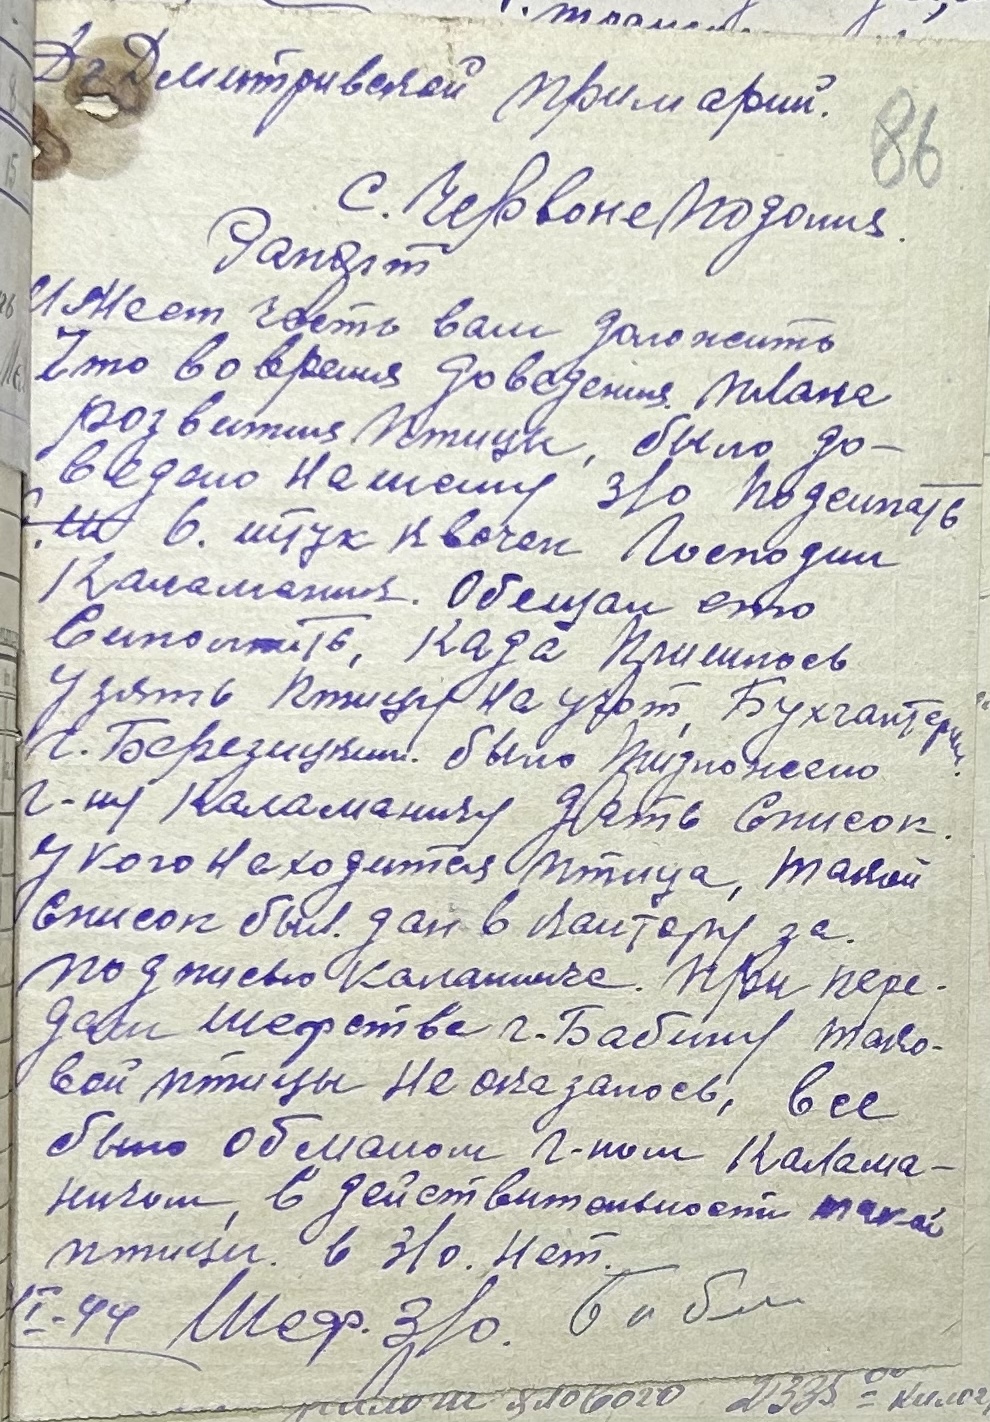 До Дмитривской примарии.
86
с. Червоне Подолия.
Рапорт
Имеет честь вам доложить
Что во время доведения плана
розвития птицы, было до-
ведено нашему з/о подсипать
6. штук квочек Господин
Каламанич. Обещал ето
виполнить, када пришлось
узять птицу на учот, Бухгалтером
г. Березицким было предложено
г-ну Каламаничу дать список.
у кого находится птица, такой
список был дан в кантору за.
подписью Каламанича. При пере-
дачи шефства г. Бабину тако-
вой птицы не оказалось, все
было обманом г-ном Калама-
ничом, в действительности такой
птици. в з/о. нет.
I-44 Шеф. З/о.
2335 килог